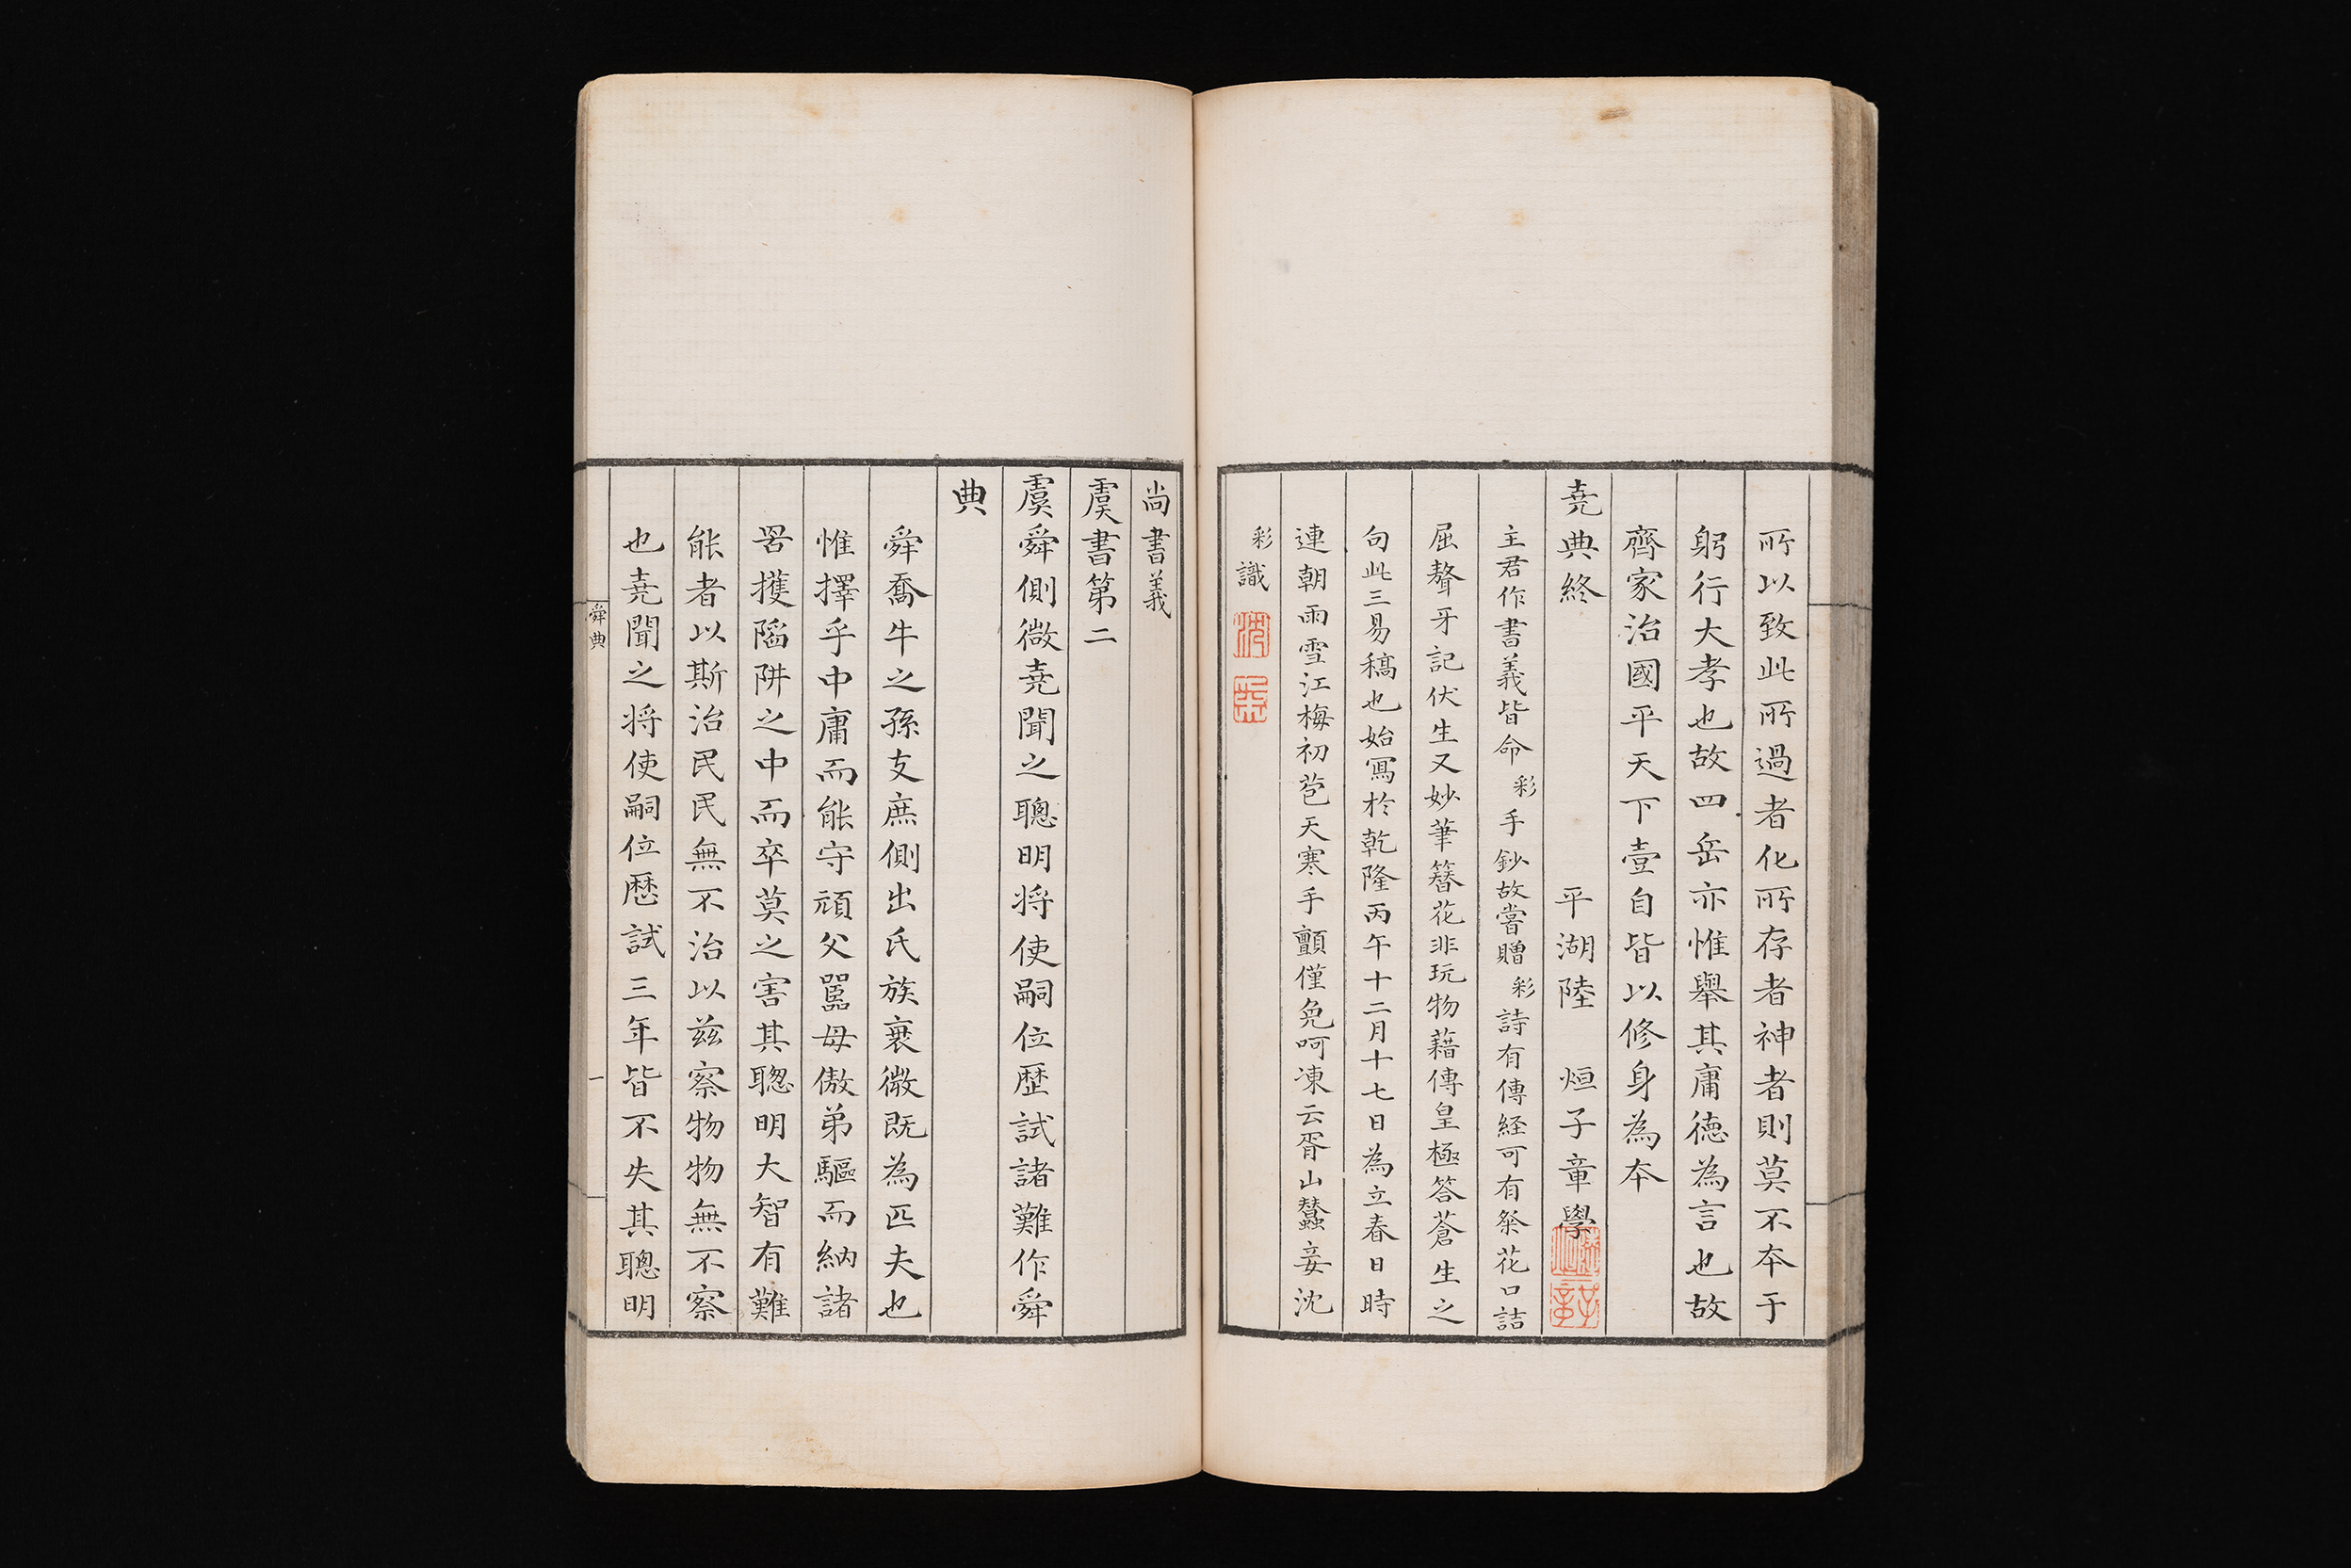 所以致此所過者化所存者神者則莫不本于
躬行大孝也故四岳亦惟舉其庸德為言也故
齊家治國平天下壹自皆以修身為本
堯典終 平湖陸 烜子章學
主君作書義皆命彩手鈔故嘗贈彩詩有傳経可有粲花口詰
屈聱牙記伏生又妙筆簪花非玩物藉傳皇極答蒼生之
句此三易稿也始寫於乾隆丙午十二月十七日為立春日時
連朝雨雪江梅初苞天寒手顫僅免呵凍云胥山蠶妾沈
彩識
尚書義
虞書第二
虞舜側微堯聞之聰明将使嗣位歷試諸難作舜
典
舜喬牛之孫支庶側出氏族衰微既為匹夫也
惟擇乎中庸而能守頑父嚚母傲弟驅而納諸
罟擭陷阱之中而卒莫之害其聰明大智有難
能者以斯治民民無不治以兹察物物無不察
也堯聞之将使嗣位歷試三年皆不失其聰明
舜典
一